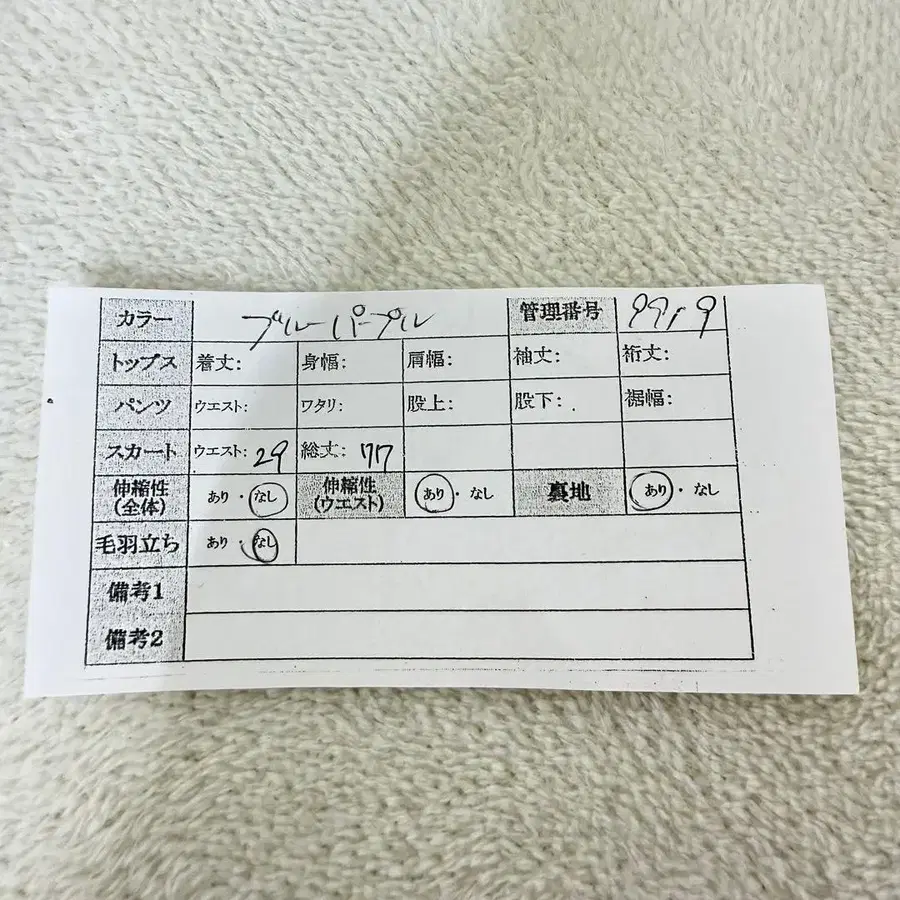 カラー ブルーパープル 管理番号 9919
トップス 着丈: 身幅: 肩幅: 袖丈: 裄丈:
パンツ ウエスト: ワタリ: 股上: 股下: 裾幅:
スカート ウエスト: 29 総丈: 77
伸縮性(全体) あり・なし 伸縮性(ウエスト) あり・なし 裏地 あり・なし
毛羽立ち あり・なし
備考1
備考2